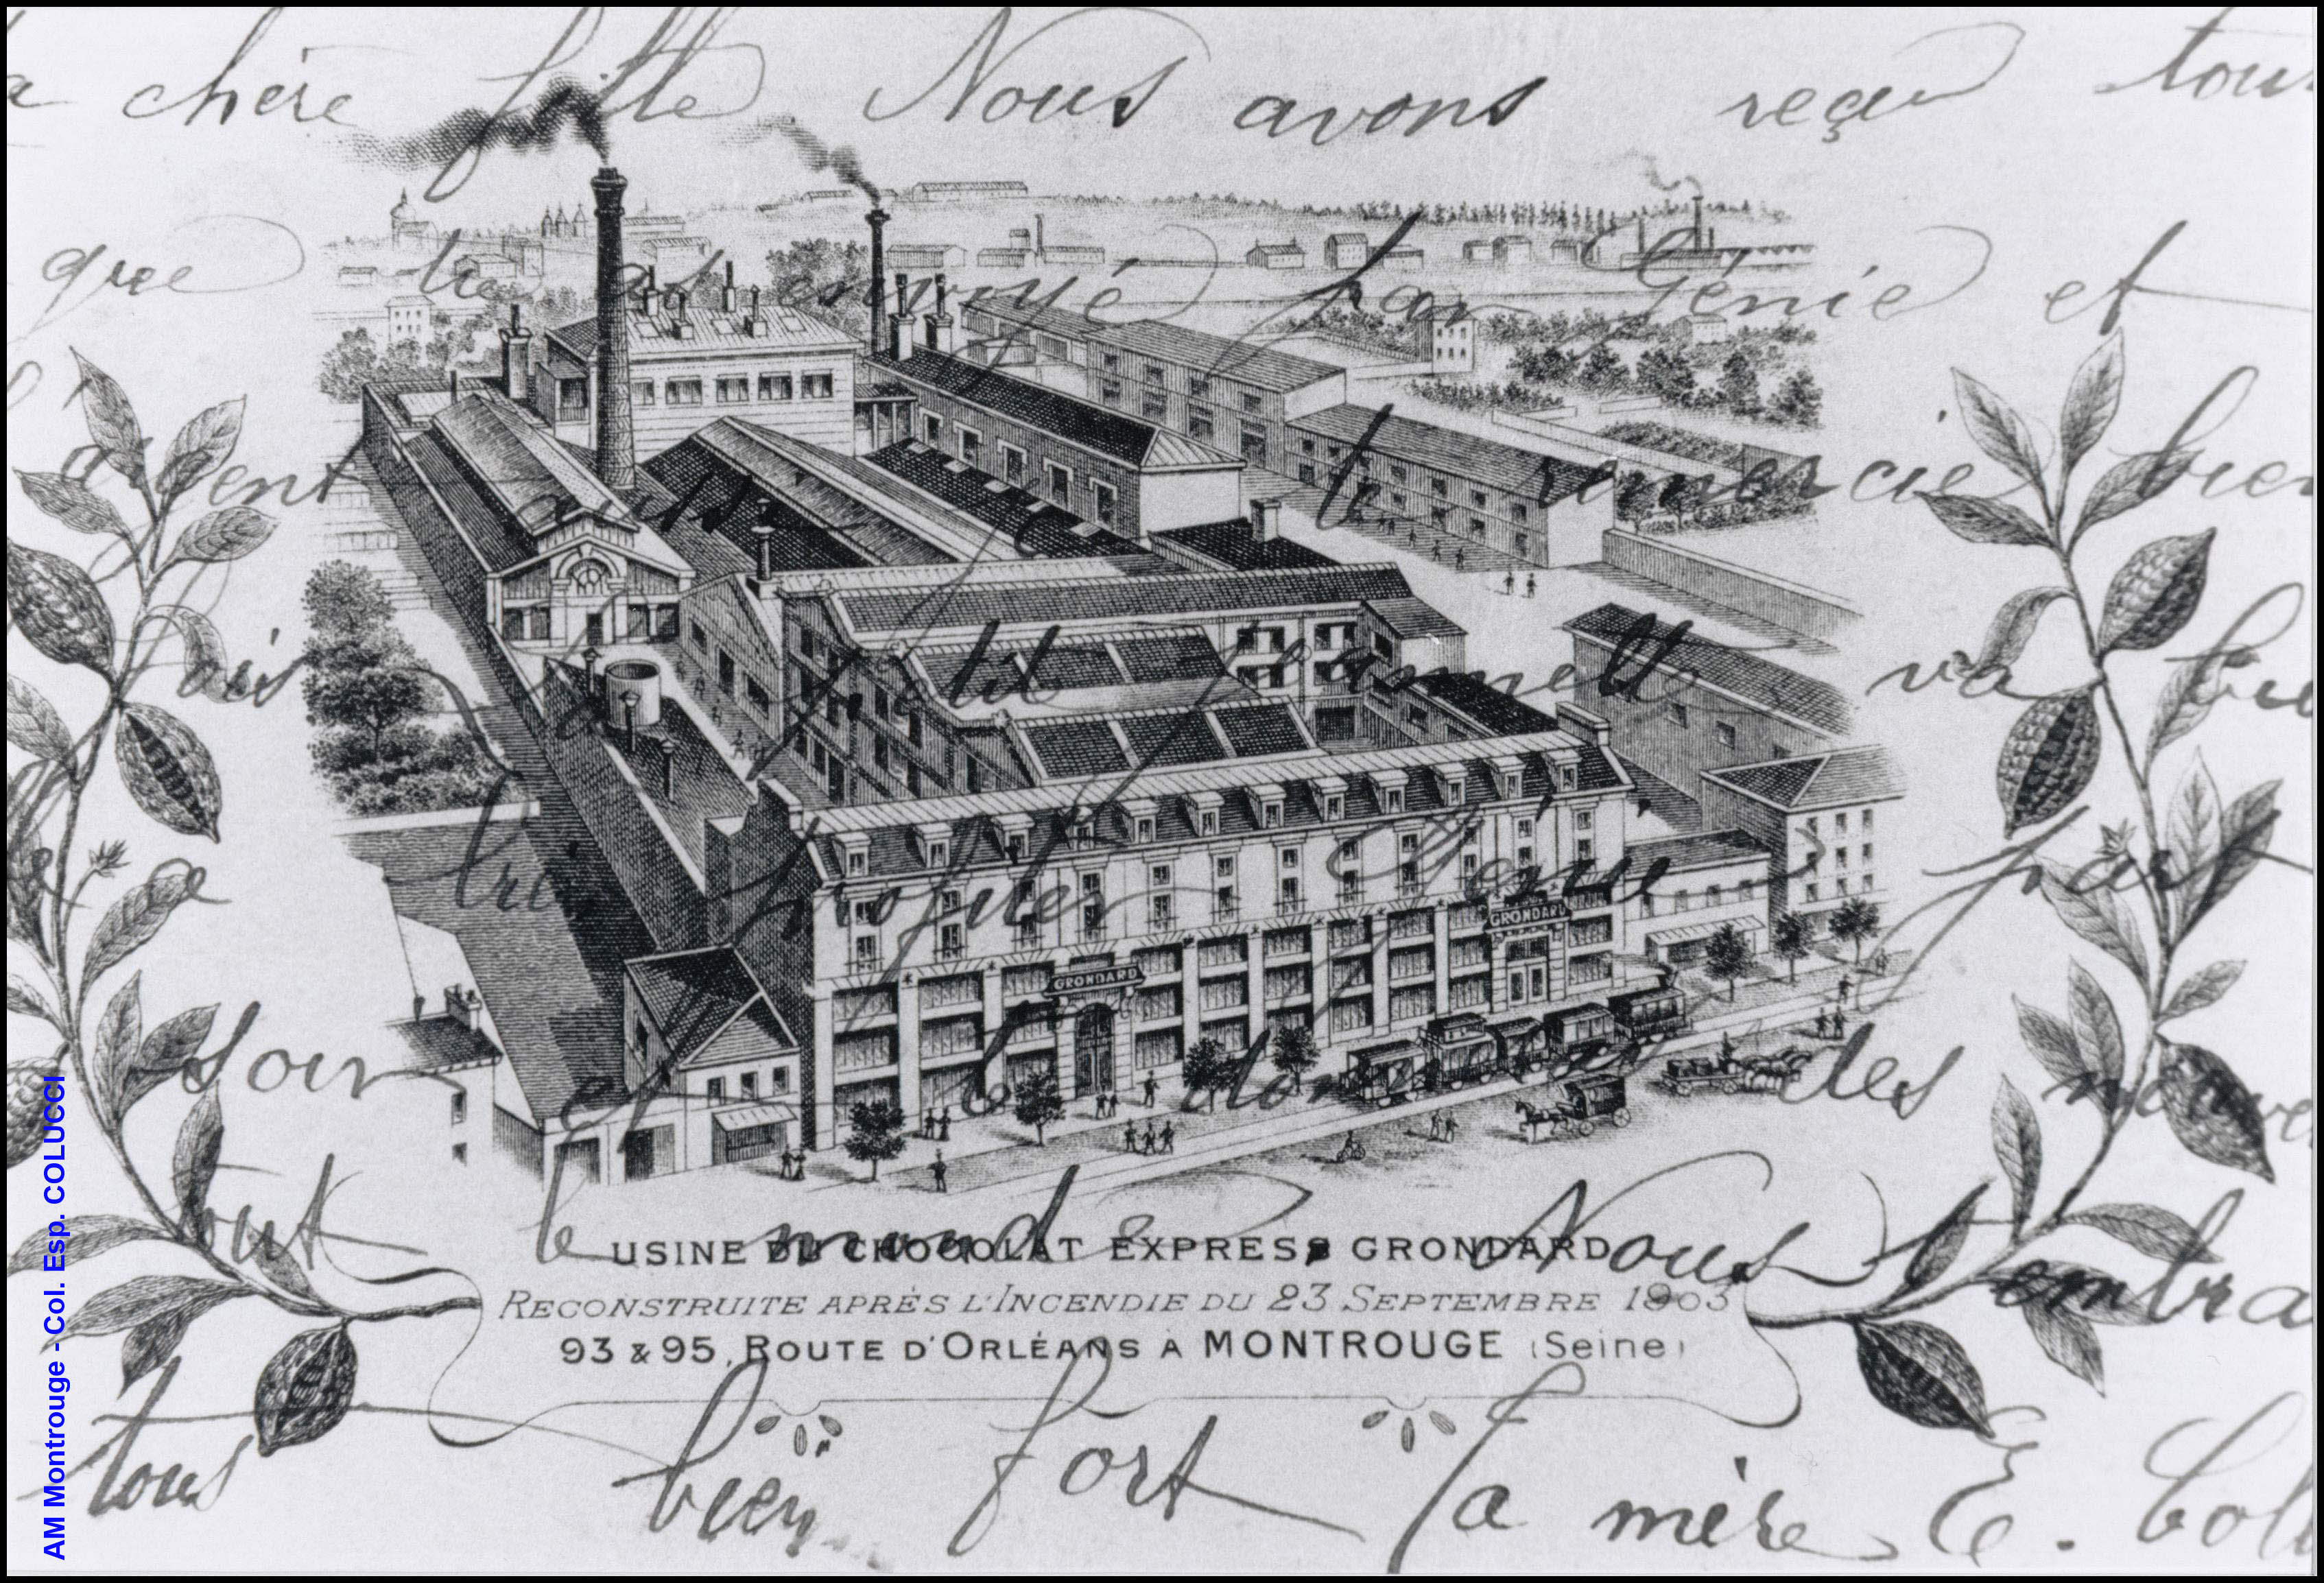 a chère fille Nous avons reçu tous
que tu as envoyé par Génie et
argent aussi Je te remercie bien
ais la petit Jeannette va bie
très profiter Génie par
soin et te donner des nouve
tout le monde Nous t'embra
tous bien fort Ta mère E. Coll
GRONDARD
GRONDARD
USINE DU CHOCOLAT EXPRESS GRONDARD
RECONSTRUITE APRÈS L'INCENDIE DU 23 SEPTEMBRE 1903
93 & 95, ROUTE D'ORLÉANS À MONTROUGE (Seine)
AM Montrouge - Col. Esp. COLUCCI